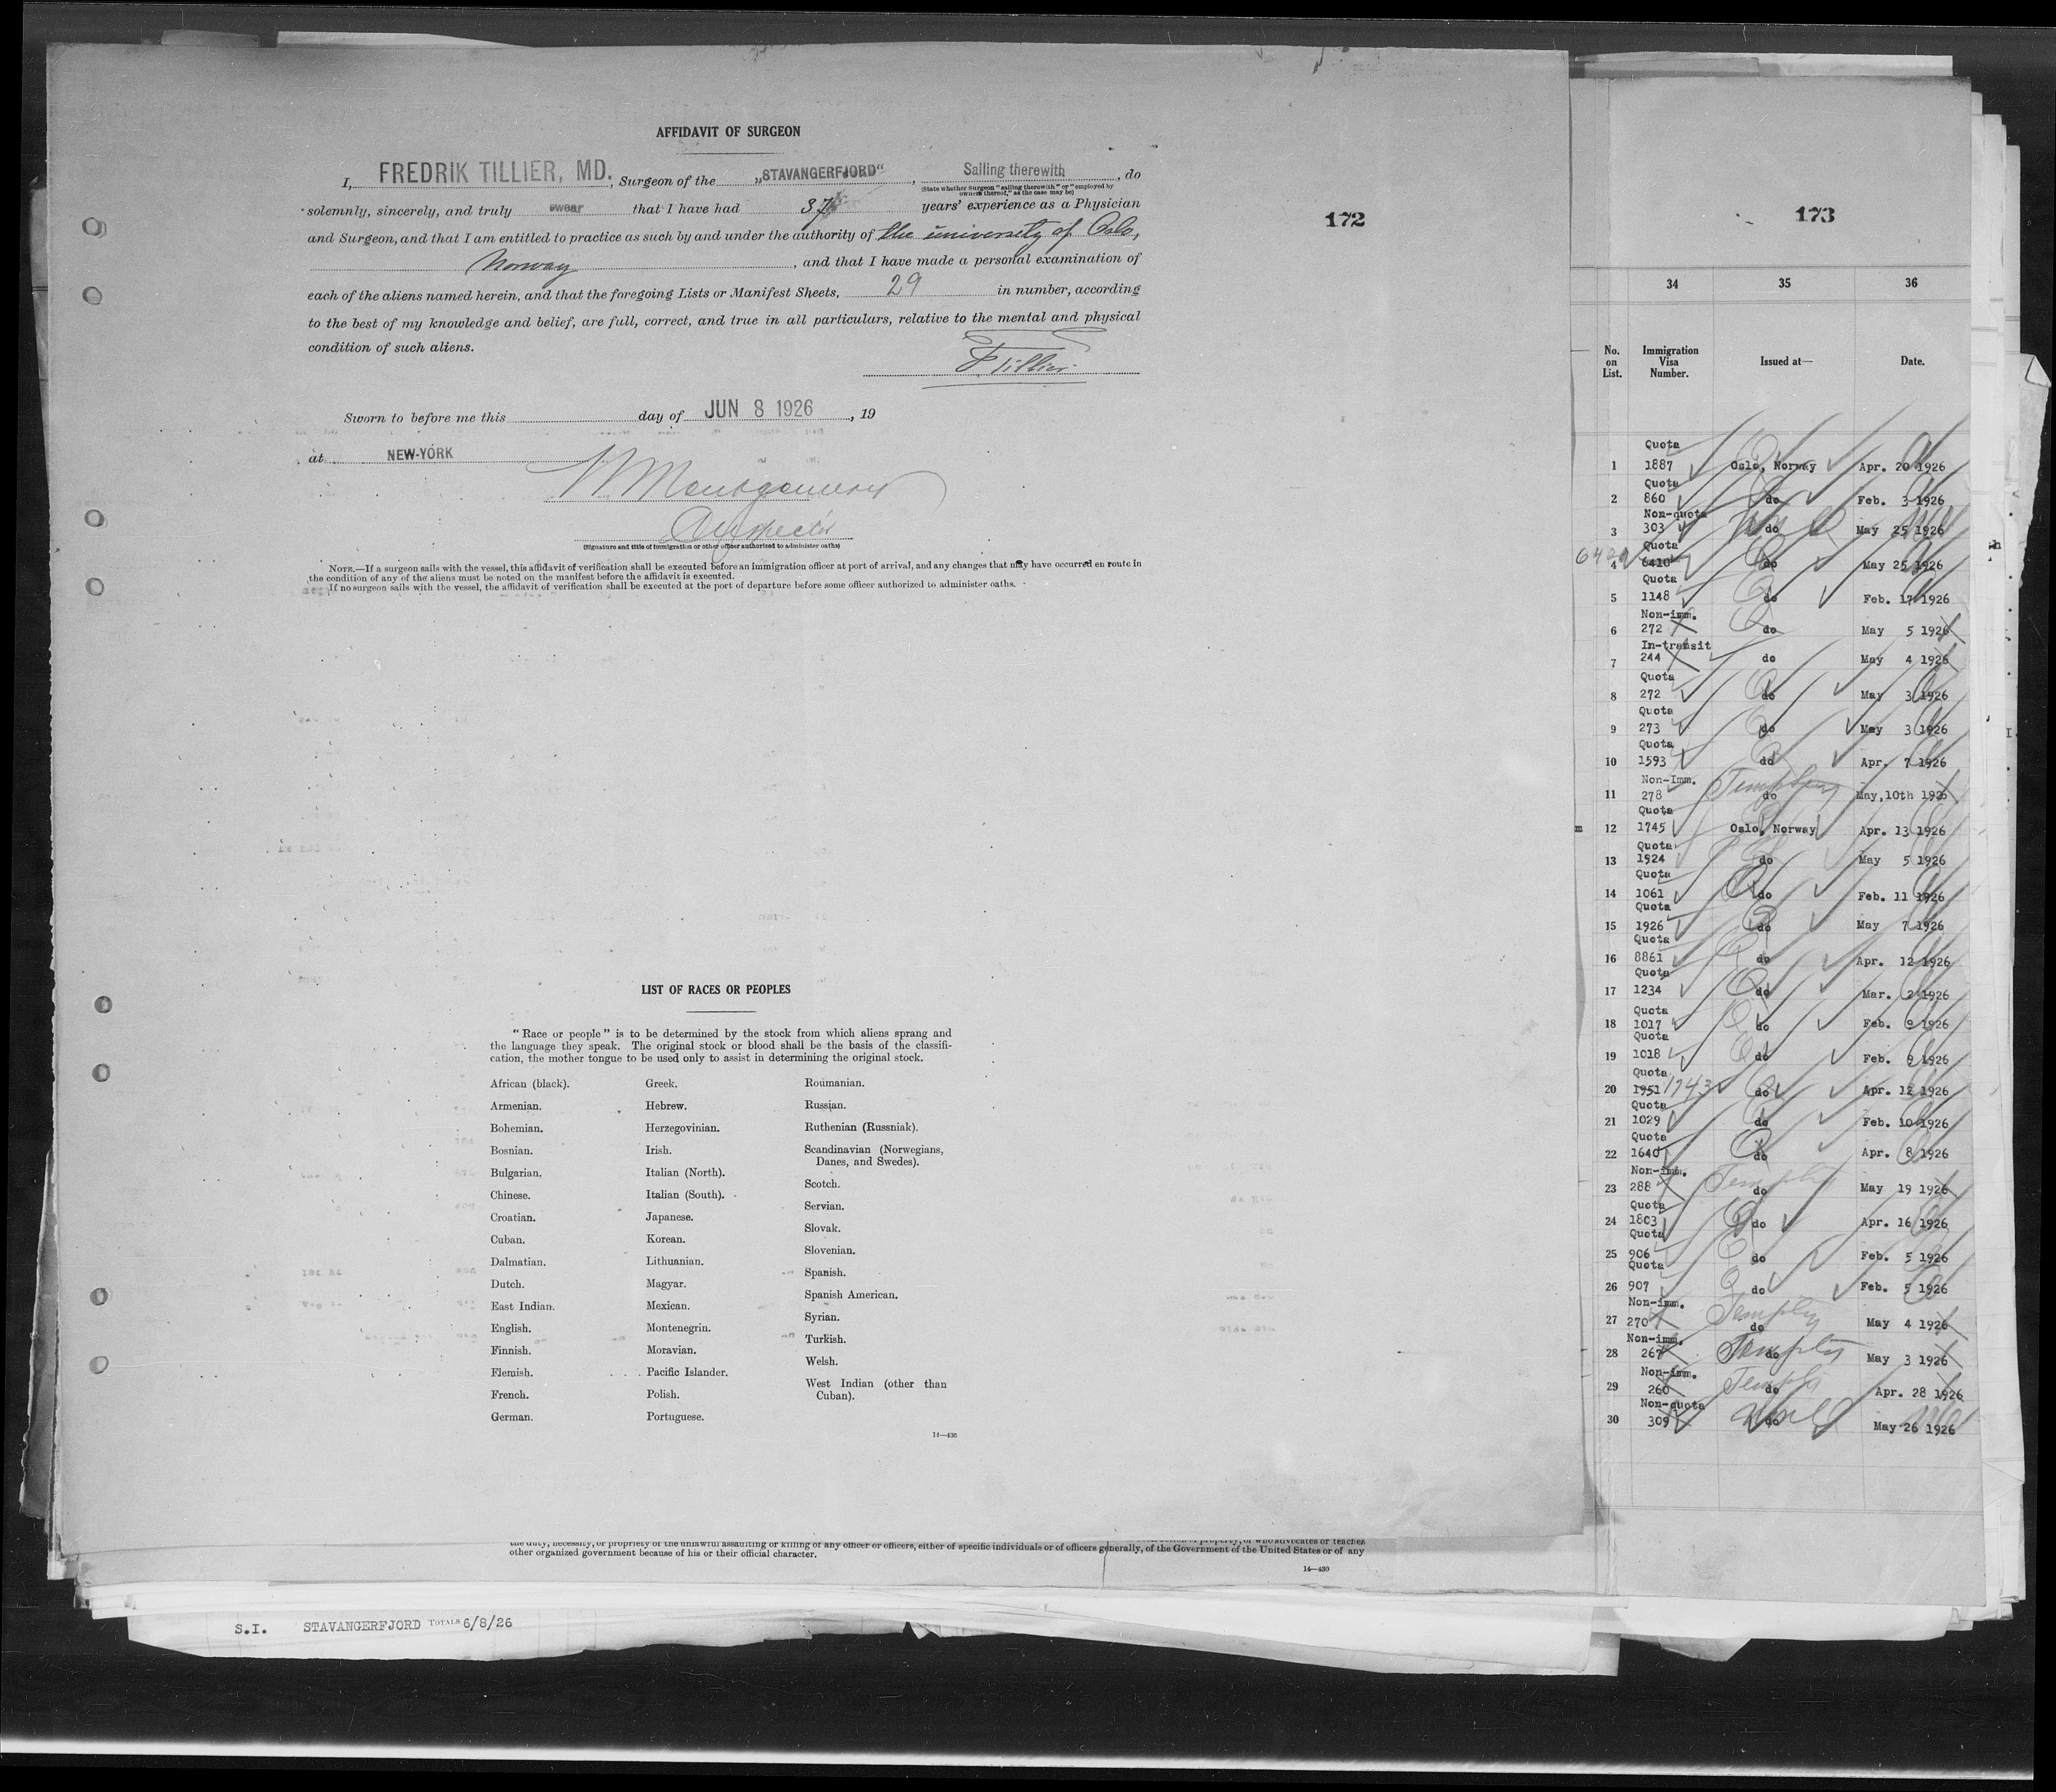 AFFIDAVIT OF SURGEON
I, FREDRIK TILLIER, MD., Surgeon of the „STAVANGERFJORD“, Sailing therewith, do
(State whether Surgeon "sailing therewith" or "employed by
owners thereof," as the case may be)
solemnly, sincerely, and truly swear that I have had 37 years' experience as a Physician
and Surgeon, and that I am entitled to practice as such by and under the authority of the university of Oslo,
Norway, and that I have made a personal examination of
each of the aliens named herein, and that the foregoing Lists or Manifest Sheets, 29 in number, according
to the best of my knowledge and belief, are full, correct, and true in all particulars, relative to the mental and physical
condition of such aliens.
F. Tillier.
Sworn to before me this day of JUN 8 1926, 19
at NEW-YORK
W Montgomery
Inspector
(Signature and title of immigration or other officer authorized to administer oaths)
NOTE.—If a surgeon sails with the vessel, this affidavit of verification shall be executed before an immigration officer at port of arrival, and any changes that may have occurred en route in
the condition of any of the aliens must be noted on the manifest before the affidavit is executed.
If no surgeon sails with the vessel, the affidavit of verification shall be executed at the port of departure before some officer authorized to administer oaths.
172
LIST OF RACES OR PEOPLES
"Race or people" is to be determined by the stock from which aliens sprang and
the language they speak. The original stock or blood shall be the basis of the classifi-
cation, the mother tongue to be used only to assist in determining the original stock.
African (black).
Armenian.
Bohemian.
Bosnian.
Bulgarian.
Chinese.
Croatian.
Cuban.
Dalmatian.
Dutch.
East Indian.
English.
Finnish.
Flemish.
French.
German.
Greek.
Hebrew.
Herzegovinian.
Irish.
Italian (North).
Italian (South).
Japanese.
Korean.
Lithuanian.
Magyar.
Mexican.
Montenegrin.
Moravian.
Pacific Islander.
Polish.
Portuguese.
Roumanian.
Russian.
Ruthenian (Russniak).
Scandinavian (Norwegians,
Danes, and Swedes).
Scotch.
Servian.
Slovak.
Slovenian.
Spanish.
Spanish American.
Syrian.
Turkish.
Welsh.
West Indian (other than
Cuban).
14—430
the duty, necessity, or propriety of the unlawful assaulting or killing of any officer or officers, either of specific individuals or of officers generally, of the Government of the United States or of any
other organized government because of his or their official character.
14—430
S.I. STAVANGERFJORD TOTALS 6/8/26
173
34 35 36
No. on List. Immigration Visa Number. Issued at— Date.
Quota
1 1887 Oslo, Norway Apr. 20 1926
Quota
2 860 do Feb. 3 1926
Non-quota
3 303 do May 25 1926
Quota
4 6410 do May 25 1926
Quota
5 1148 do Feb. 17 1926
Non-imm.
6 272 do May 5 1926
In-transit
7 244 do May 4 1926
Quota
8 272 do May 3 1926
Quota
9 273 do May 3 1926
Quota
10 1593 do Apr. 7 1926
Non-Imm.
11 278 do May,10th 1926
Quota
12 1745 Oslo, Norway Apr. 13 1926
Quota
13 1924 do May 5 1926
Quota
14 1061 do Feb. 11 1926
Quota
15 1926 do May 7 1926
Quota
16 8861 do Apr. 12 1926
Quota
17 1234 do Mar. 2 1926
Quota
18 1017 do Feb. 9 1926
Quota
19 1018 do Feb. 9 1926
Quota
20 1951 1743 do Apr. 12 1926
Quota
21 1029 do Feb. 10 1926
Quota
22 1640 do Apr. 8 1926
Non-imm.
23 288 do May 19 1926
Quota
24 1803 do Apr. 16 1926
Quota
25 906 do Feb. 5 1926
Quota
26 907 do Feb. 5 1926
Non-imm.
27 270 do May 4 1926
Non-imm.
28 267 do May 3 1926
Non-imm.
29 260 do Apr. 28 1926
Non-quota
30 309 do May 26 1926